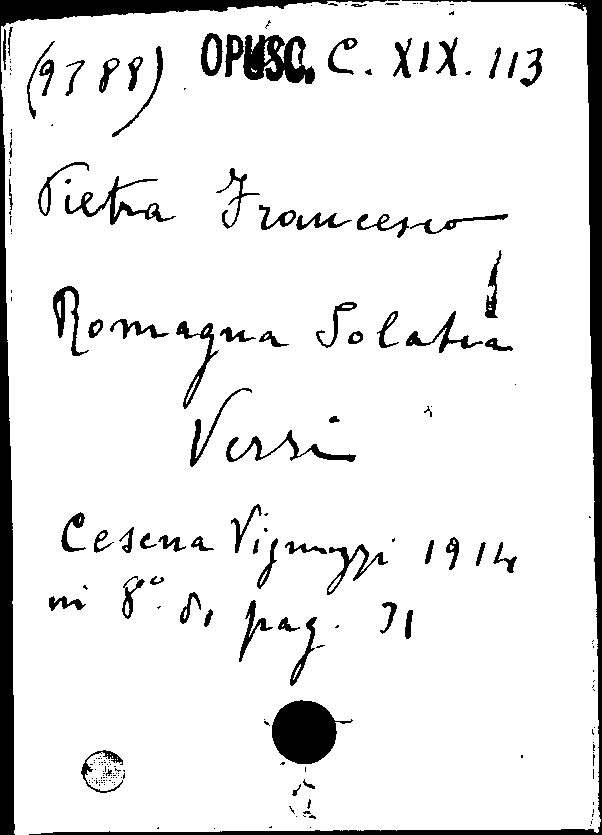 (9388) OPUSC. C. XIX. 113
Pietra Francesco
Romagna Solatia
Versi
Cesena Vignuzzi 1914
in 8º. di pag. 31